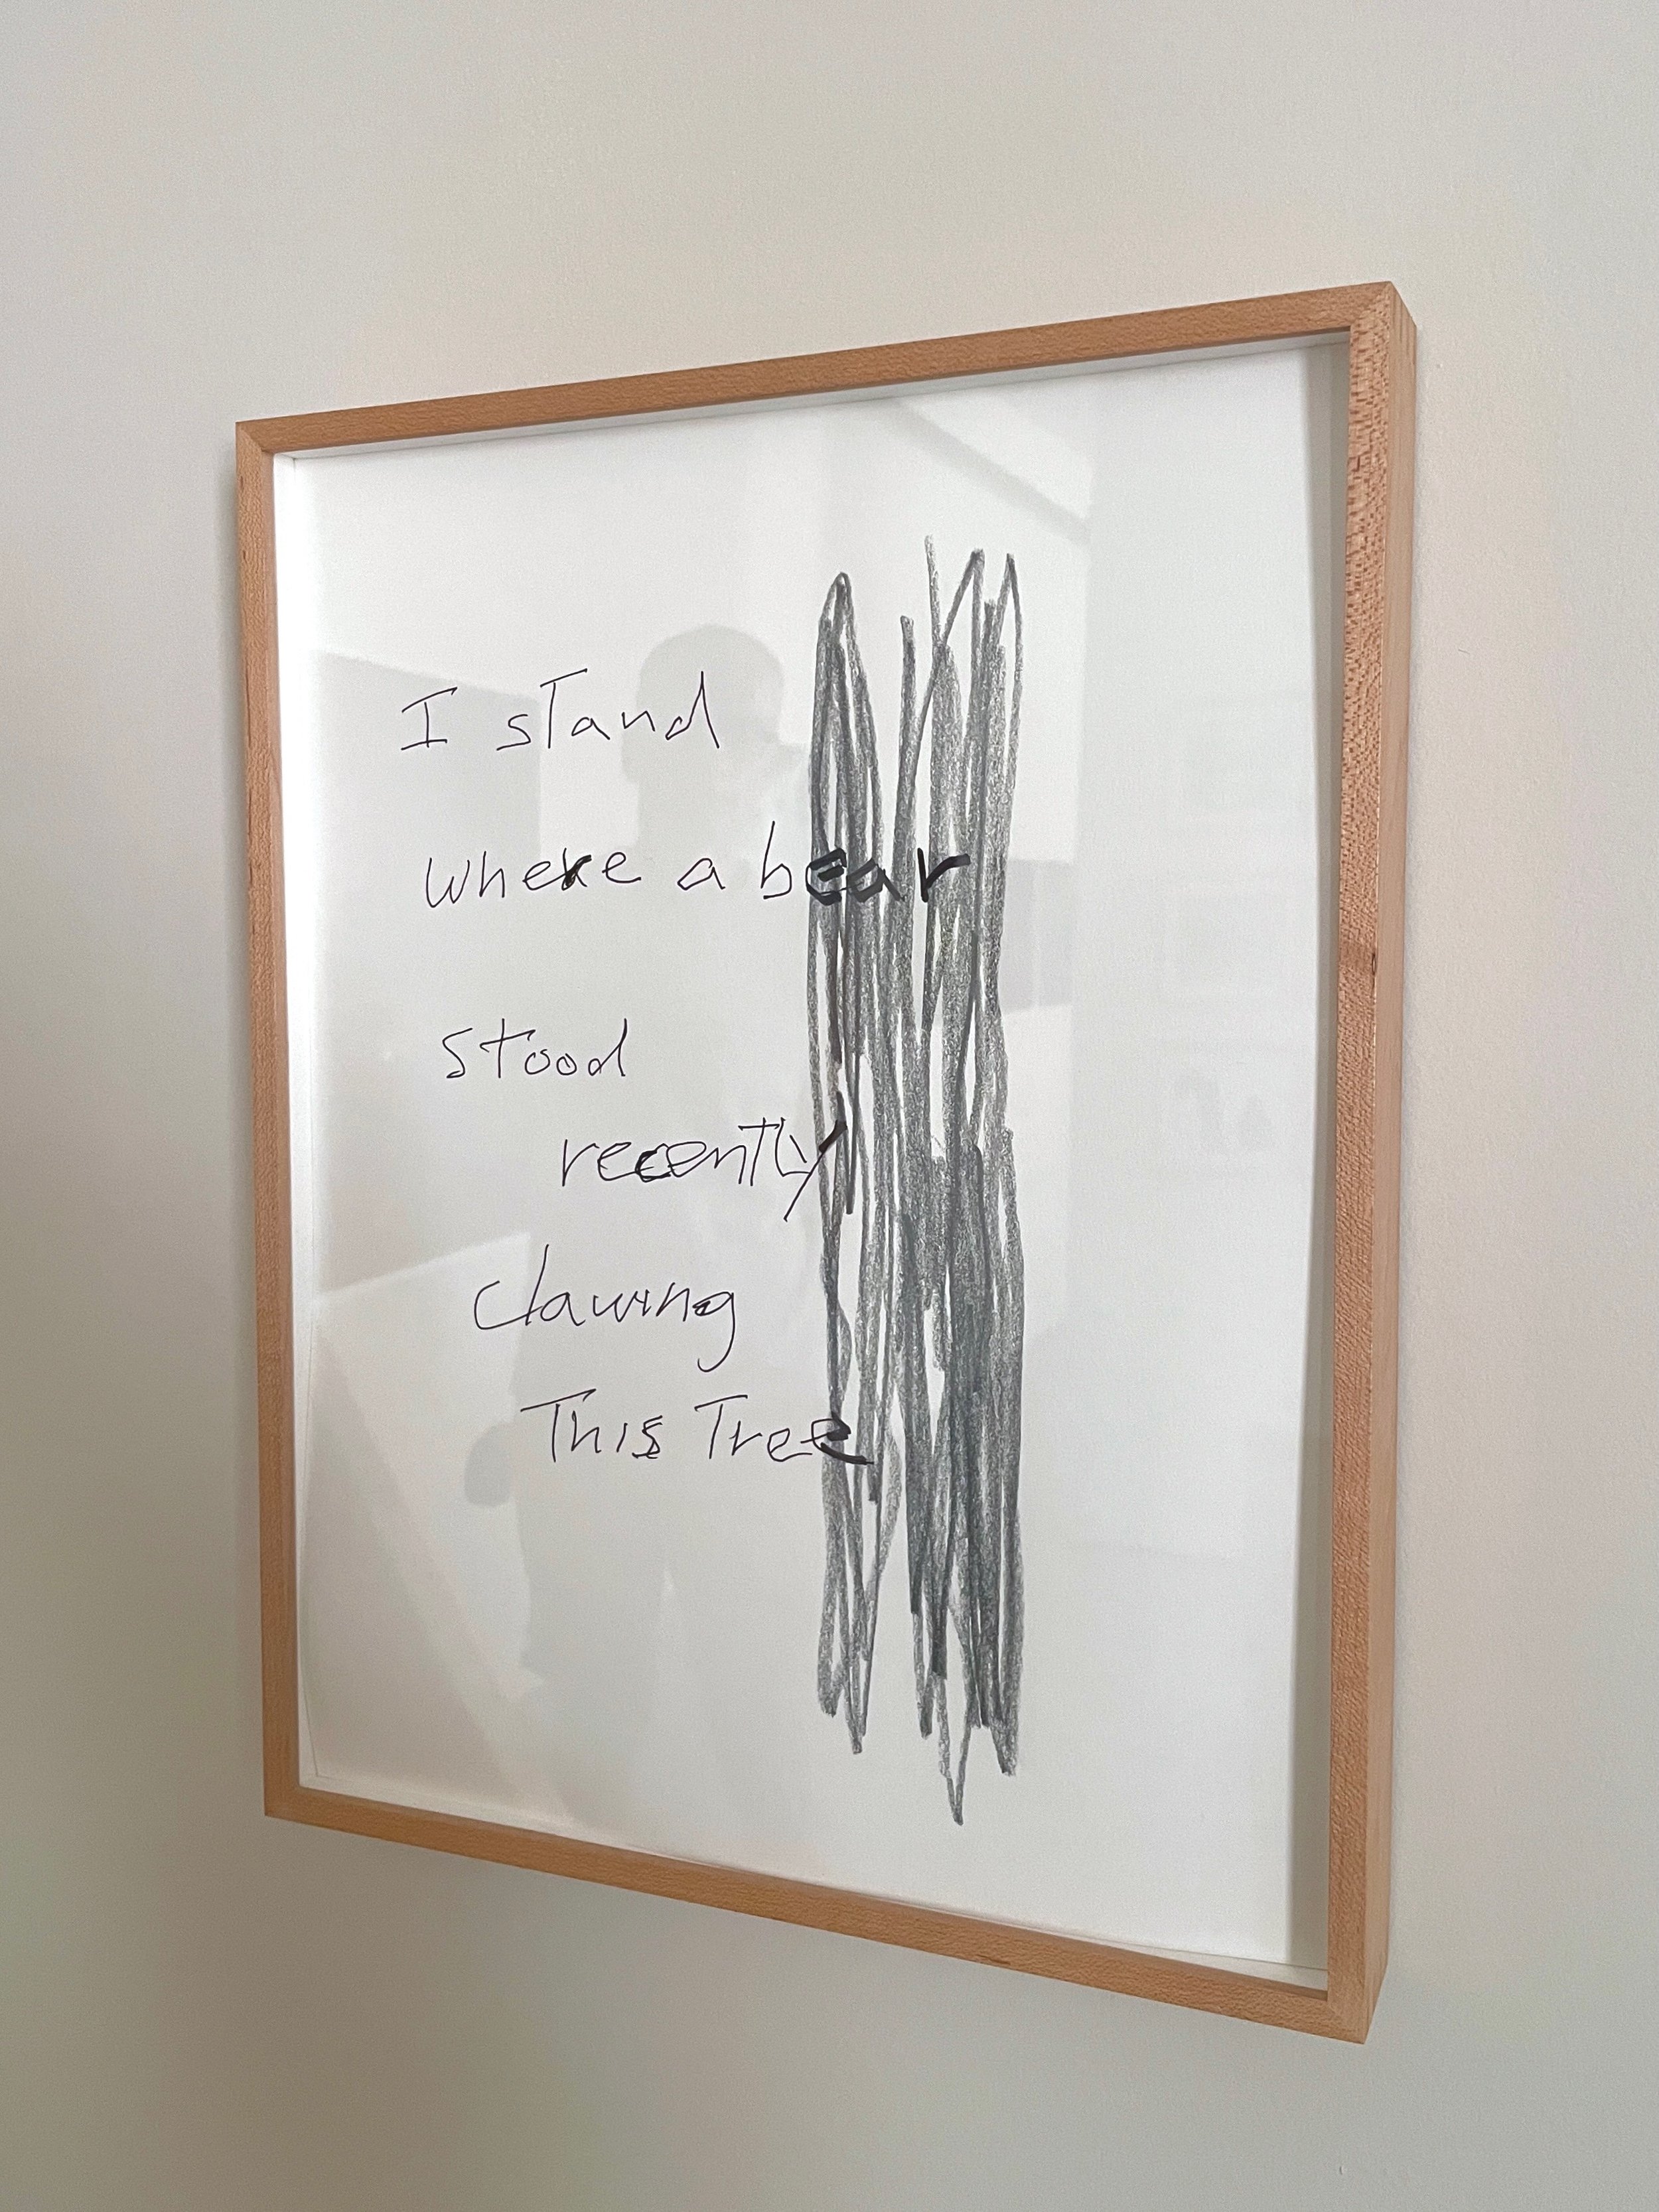 I stand
where a bear
stood
recently
clawing
This Tree